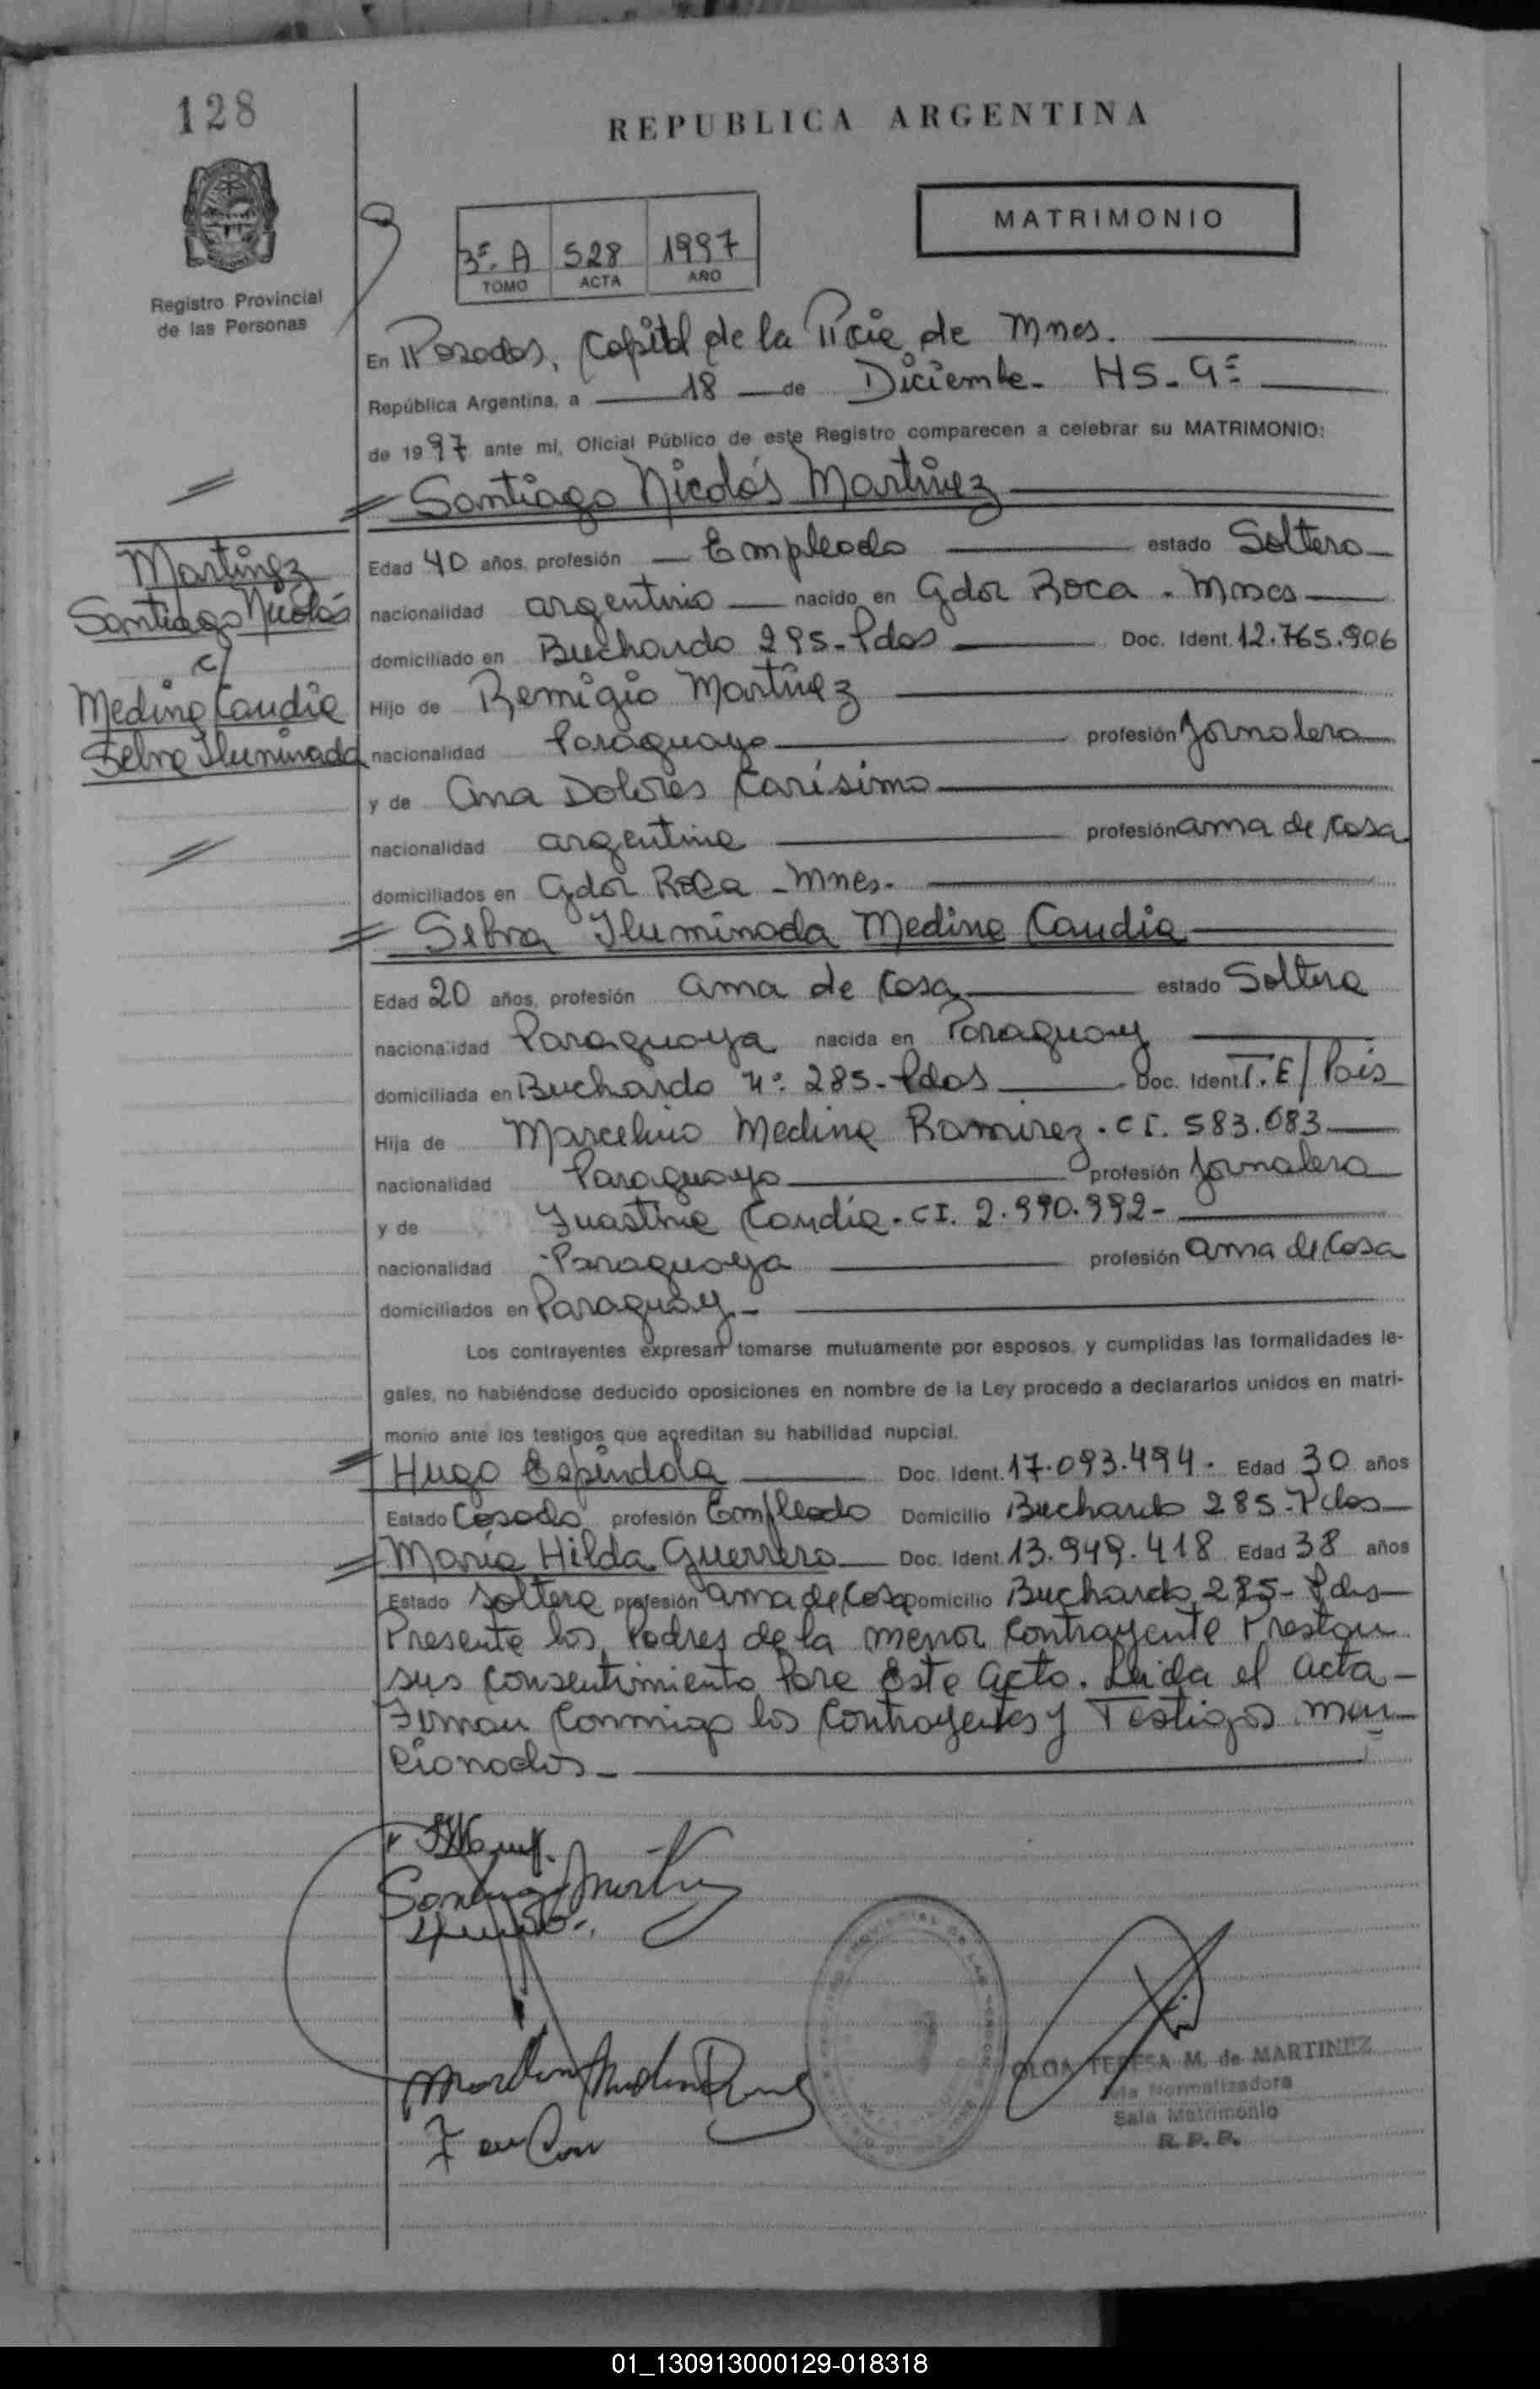 128
REPUBLICA ARGENTINA
MATRIMONIO
3º. A 528 1997
TOMO ACTA AÑO
Registro Provincial
de las Personas
En Posadas, Capital de la Pcia de Mnes.
República Argentina, a 18 de Diciembre - HS. 9=
de 1997 ante mi, Oficial Público de este Registro comparecen a celebrar su MATRIMONIO:
Santiago Nicolás Martinez
Martinez
Santiago Nicolás
c/
Medina Candia
Selva Iluminada
Edad 40 años, profesión Empleado estado Soltero
nacionalidad argentino nacido en Gdor Roca - Mnes
domiciliado en Buchardo 295 - Pdas Doc. Ident. 12.765.906
Hijo de Remigio Martinez
nacionalidad Paraguayo profesión Jornalero
y de Ana Dolores Carísimo
nacionalidad argentina profesión ama de casa
domiciliados en Gdor Roca - Mnes.
Selva Iluminada Medina Candia
Edad 20 años, profesión ama de casa estado Soltera
nacionalidad Paraguaya nacida en Paraguay
domiciliada en Buchardo Nº 285 - Pdas Doc. Ident. T.E/Pais
Hija de Marcelino Medina Ramirez - CI. 583.083
nacionalidad Paraguayo profesión Jornalero
y de Candia - CI. 2.990.992 -
nacionalidad Paraguaya profesión ama de casa
domiciliados en Paraguay -
Los contrayentes expresan tomarse mutuamente por esposos, y cumplidas las formalidades le-
gales, no habiéndose deducido oposiciones en nombre de la Ley procedo a declararlos unidos en matri-
monio ante los testigos que acreditan su habilidad nupcial.
Hugo Espindola Doc. Ident. 17.093.494 - Edad 30 años
Estado Casado profesión Empleado Domicilio Buchardo 285 - Pdas
María Hilda Guerrero Doc. Ident. 13.949.418 Edad 38 años
Estado soltera profesión ama de casa Domicilio Buchardo 285 - Pdas
Presente los Padres de la menor contrayente Prestan
sus consentimiento Para este acto. Leida el acta -
Firman conmigo los contrayentes y Testigos men-
cionados -
Santiago Martinez
OLGA TERESA M. de MARTINEZ
Normalizadora
Sala Matrimonio
R. P. P.
01_130913000129-018318